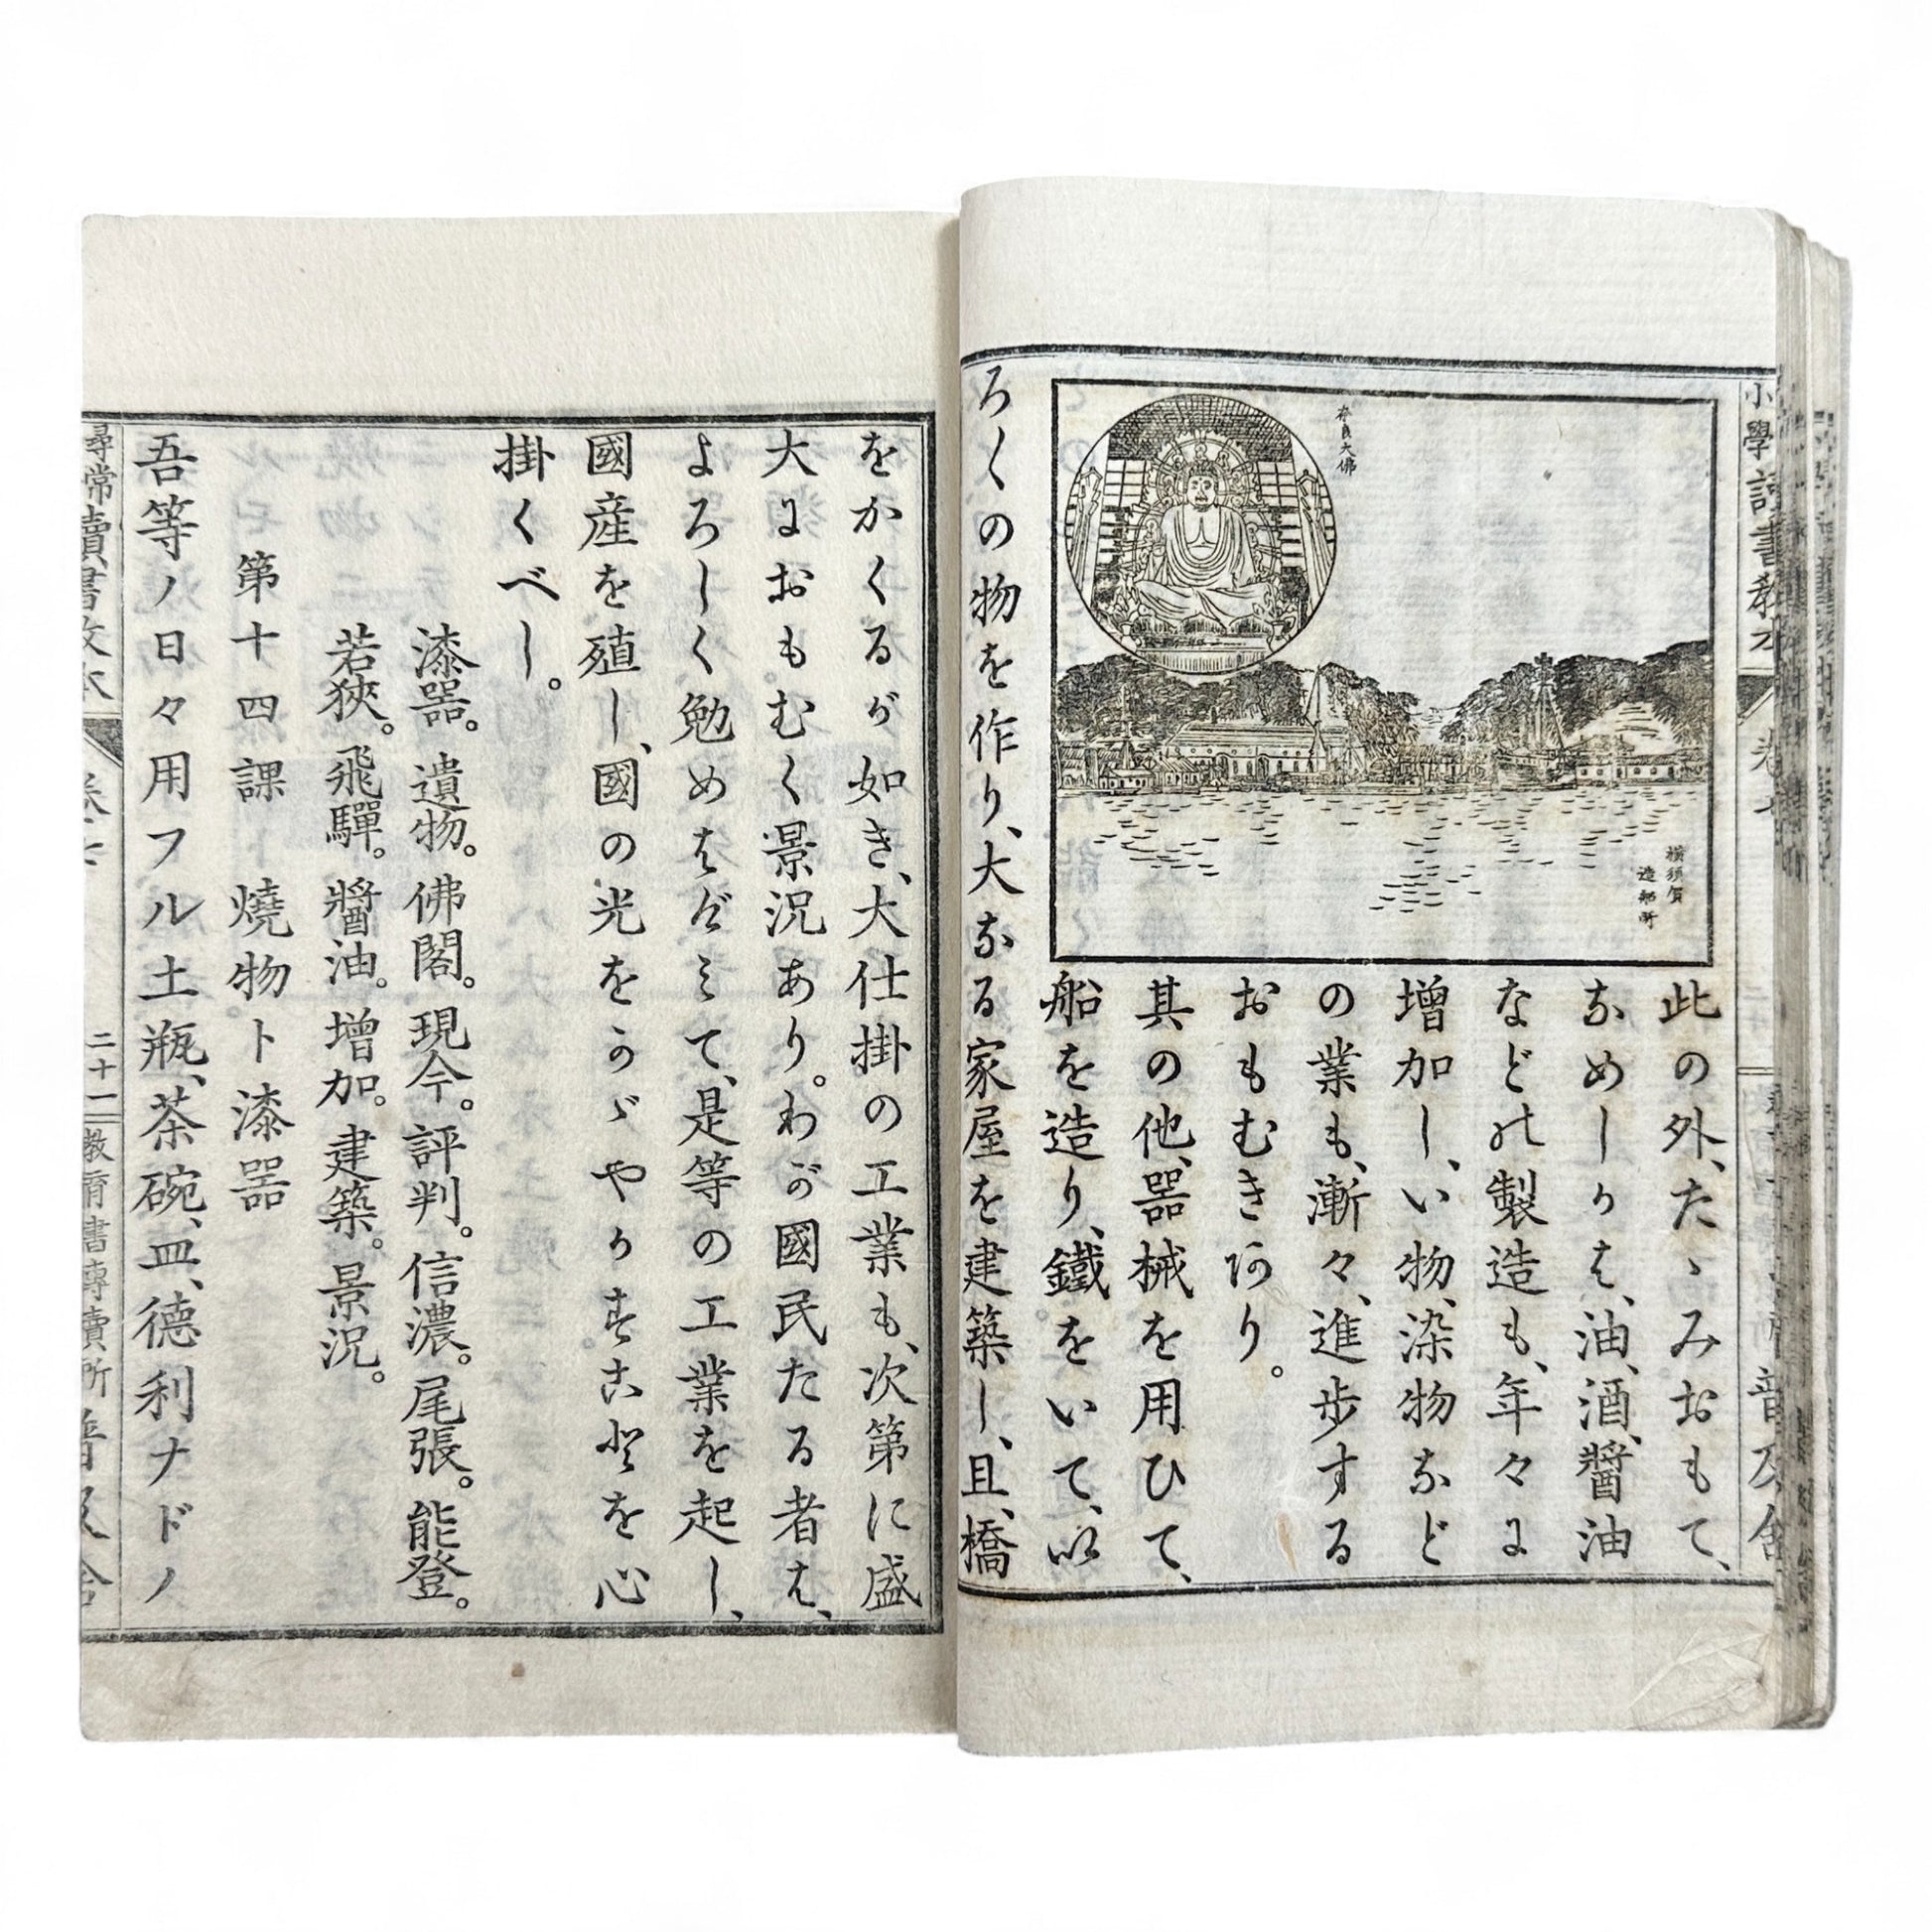 小學讀書教本 巻七 普及舍
奈良大佛
横須賀
造船所
此の外、たゝみおもて、
なめしかは、油、酒、醤油
などの製造も、年々に
増加し、い物、染物など
の業も、漸々、進歩する
おもむきあり。
其の他、器械を用ひて、
船を造り、鐵をいて、い
ろ〱の物を作り、大なる家屋を建築し、且、橋
をかくるが如き、大仕掛の工業も、次第に盛
大におもむく景況あり。わが國民たる者は、
よろしく勉めはげみて、是等の工業を起し、
國産を殖し、國の光をかゞやかすことを心
掛くべし。
漆器。遺物。佛閣。現今。評判。信濃。尾張。能登。
若狹。飛驒。醤油。増加。建築。景況。
第十四課 燒物ト漆器
吾等ノ日々用フル土瓶、茶碗、皿、德利ナドノ
尋常讀書教本 巻七 二十一 教育書專賣所 普及舍